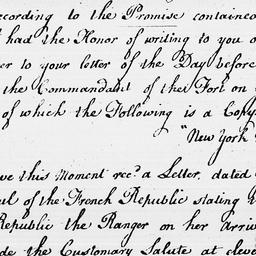 ccording to the Promise containe
had the Honor of writing to you o
er to your letter of the Day before
the Commandant of the Fort on
of which the Following is a Copy
"New York
ve this Moment rec.d a Letter, dated
ul of the French Republic stating th
Republic the Ranger on her arriv
de the Customary Salute at eleve